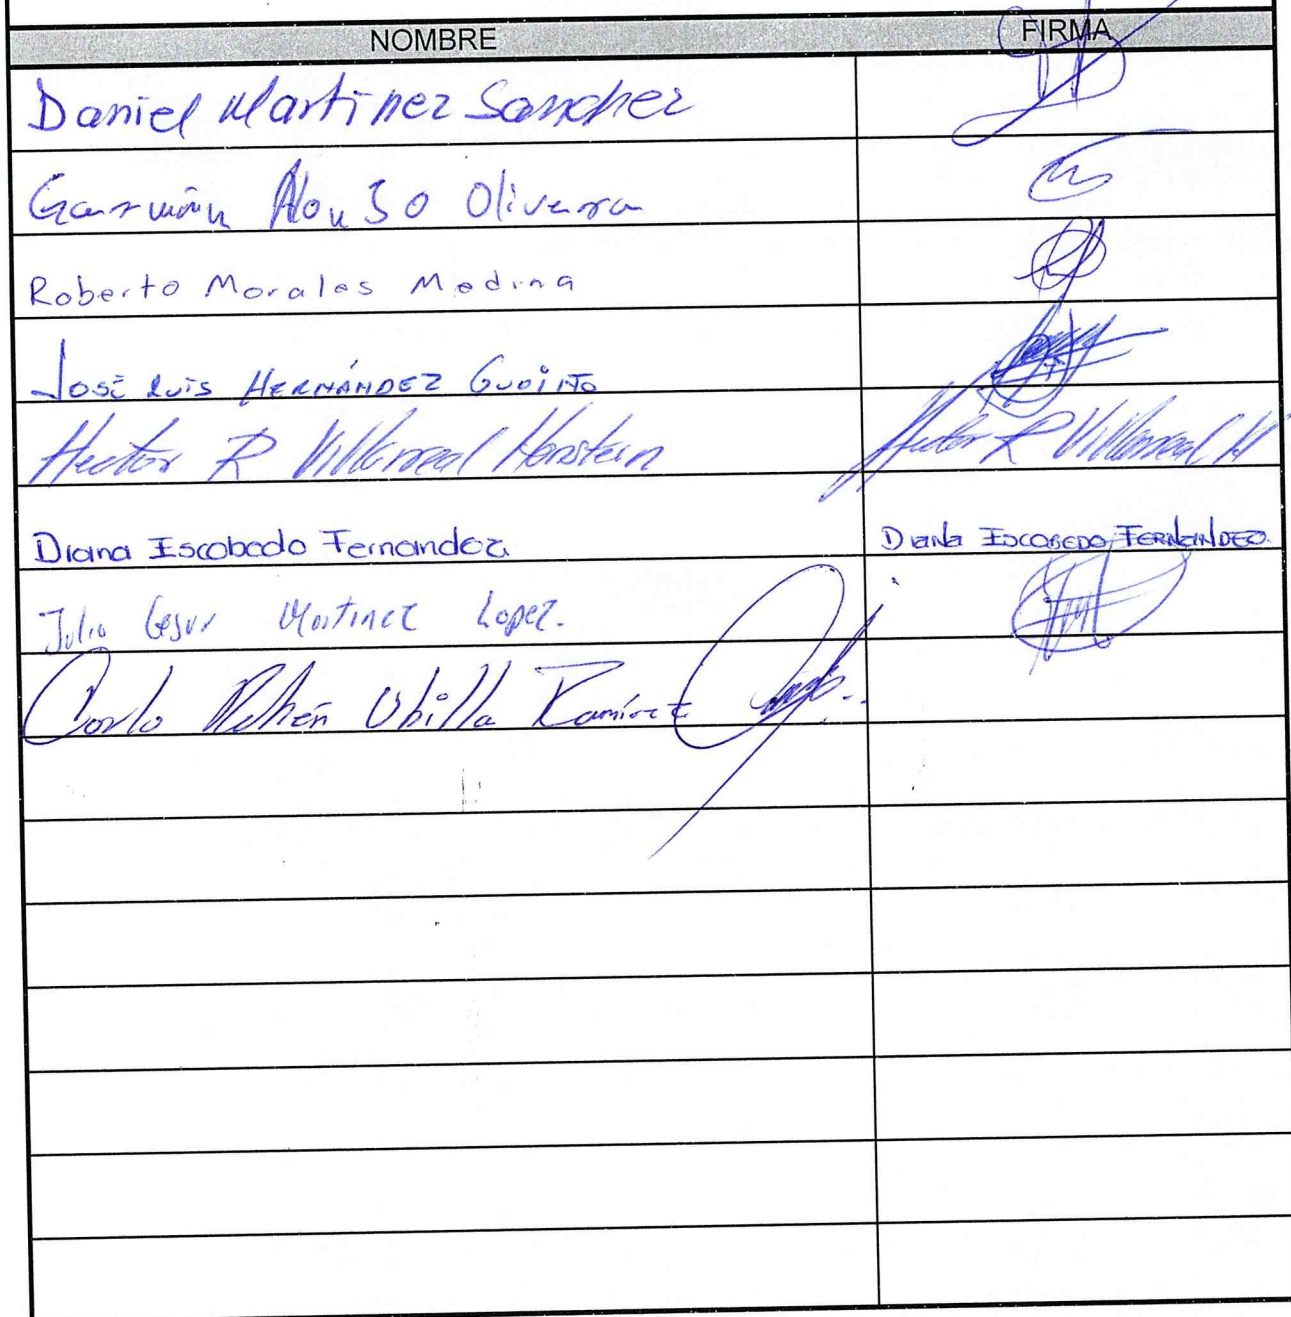 NOMBRE FIRMA
Daniel Martinez Sanchez
Alonso Olivera
Roberto Morales Medina
José Luis HERNÁNDEZ GUDIÑO
Hector R Villarreal Hector R Villarreal H
Diana Escobedo Fernandez. Diana ESCOBEDO FERNANDEZ.
Julio Cesar Martinez Lopez.
Ubilla Ramírez